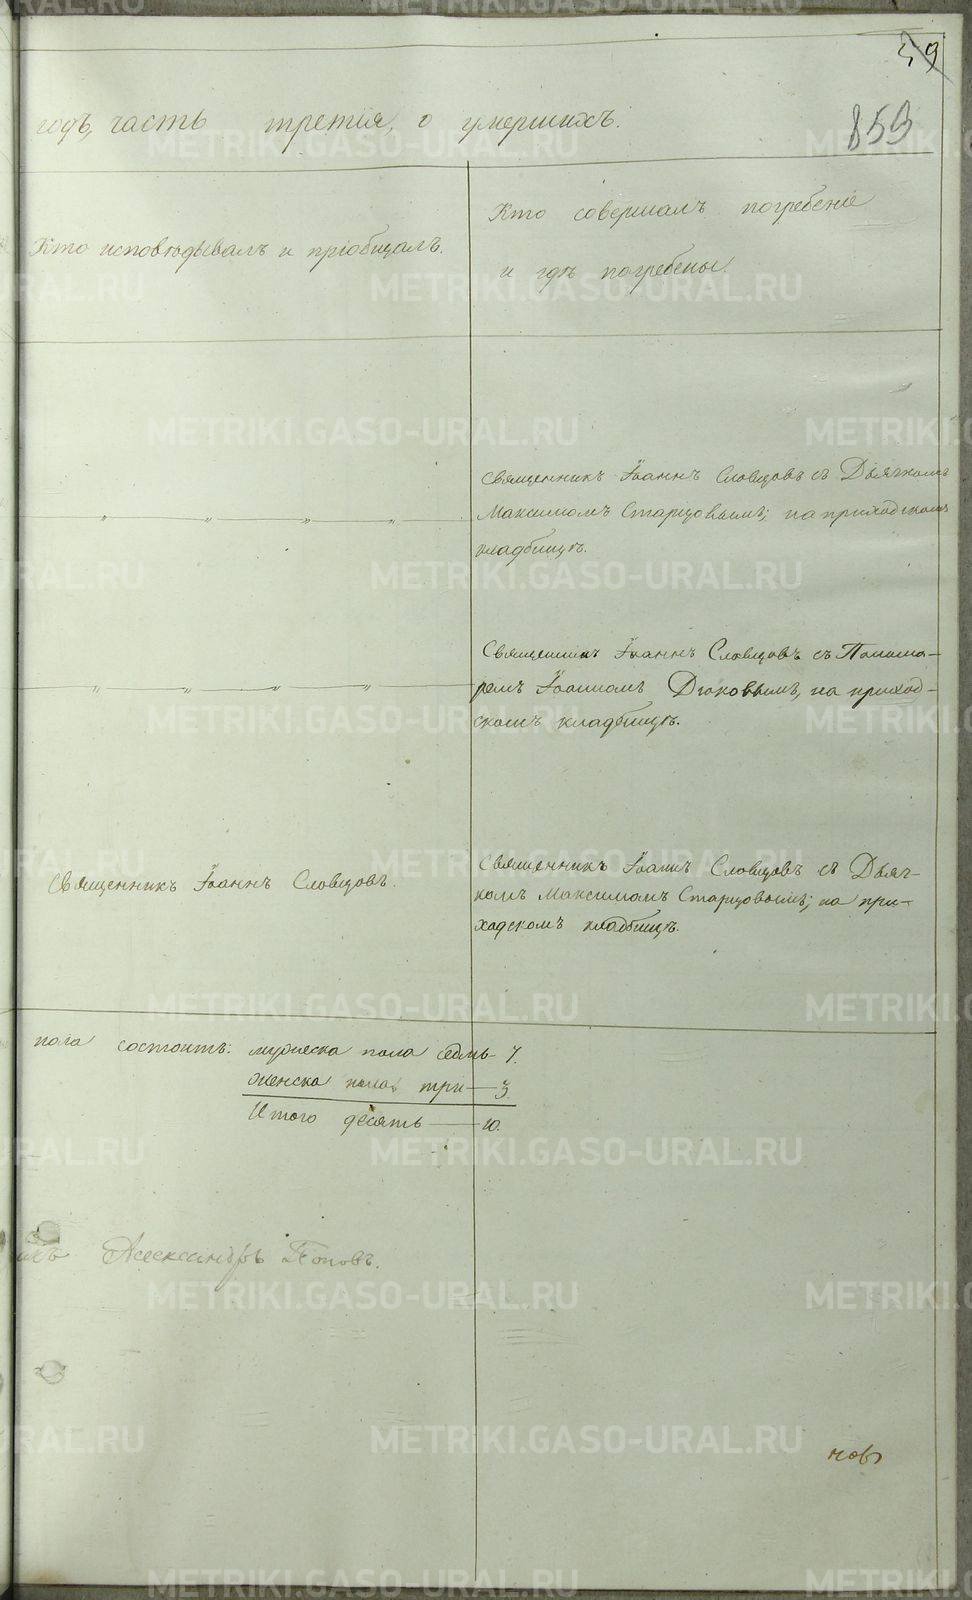 59
859
годъ, часть третія, о умершихъ.
Кто исповѣдывалъ и пріобщалъ.
Кто совершалъ погребеніе
и гдѣ погребены.
Священникъ Іоаннъ Словцовъ съ Дьячкомъ
Максимомъ Старцовымъ; на приходскомъ
кладбищѣ.
Священникъ Іоаннъ Словцовъ съ Понома-
ремъ Іоанномъ Дюковымъ, на приход-
скомъ кладбищѣ.
Священникъ Іоаннъ Словцовъ.
Священникъ Іоаннъ Словцовъ съ Дьяч-
комъ Максимомъ Старцовымъ; на при-
ходскомъ кладбищѣ.
пола состоитъ: мужеска пола седмь 7.
женска пола три 3.
Итого десять 10.
икъ Александръ Поповъ.
нов
METRIKI.GASO-URAL.RU